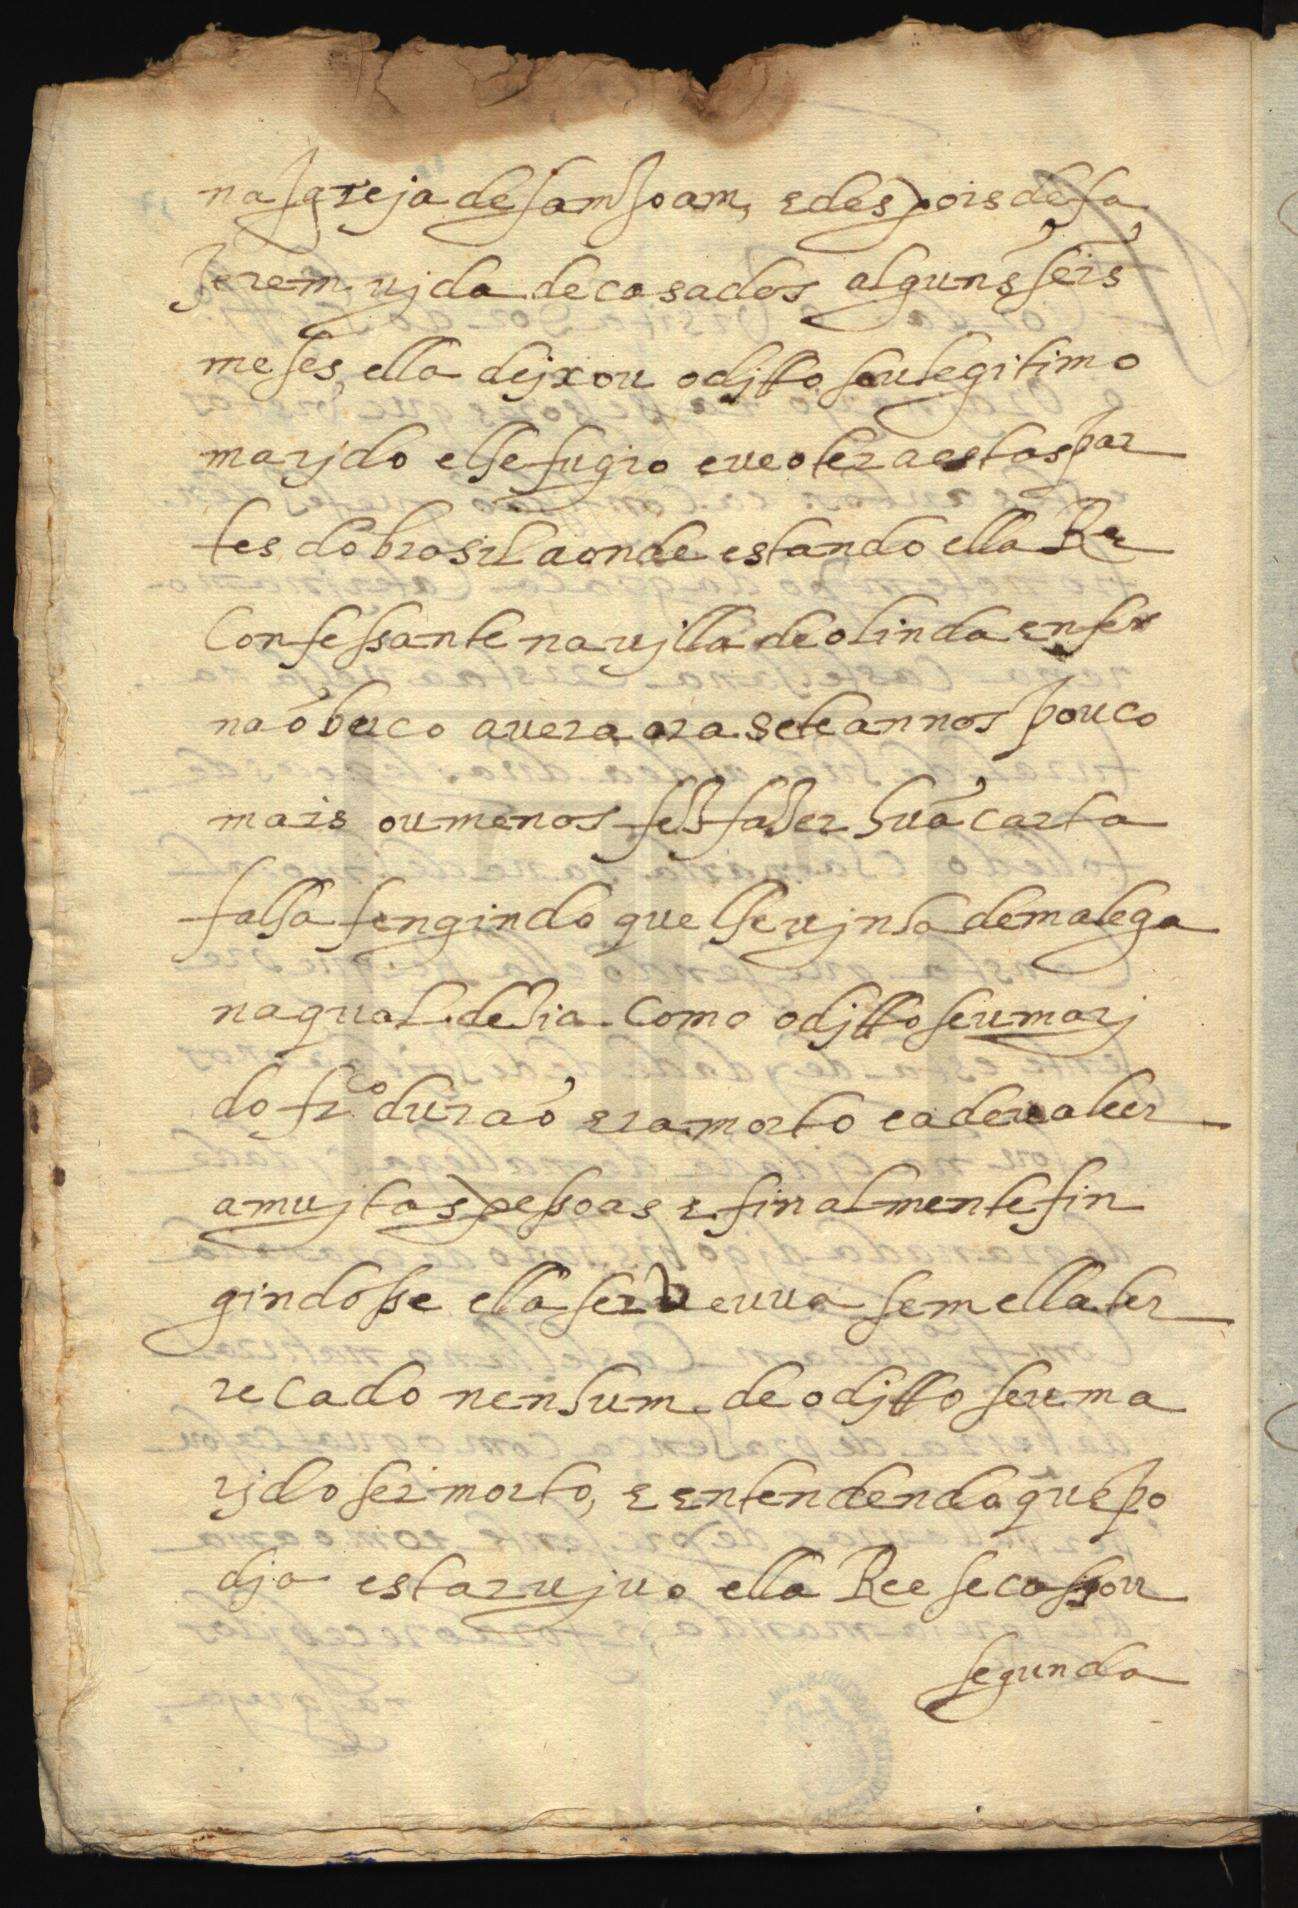 na Jgreja de sam Joam, e despois de fa
zerem vjda de casados algũns seis
meses, ella dejxou o djtto seu legitimo
marjdo e lhe fugio e veo ter a estas par
tes do brasil aonde estando ella Ree
Confessante na vjlla de olinda em fer
naõbuco avera ora sete annos pouco
mais ou menos fez fazer hũa carta
falsa fengindo que lhe vjnha de malega
na qual dezia Como o djtto seu marj
do frco durão era morto e a deu a leer
a mujtas pessoas e finalmente fin
gindosse ella ser veuva sem ella ter
recado nenhum de o djtto seu ma
rjdo ser morto, e entendendo que po
dja estar vjvo ella Ree se cassou
segunda